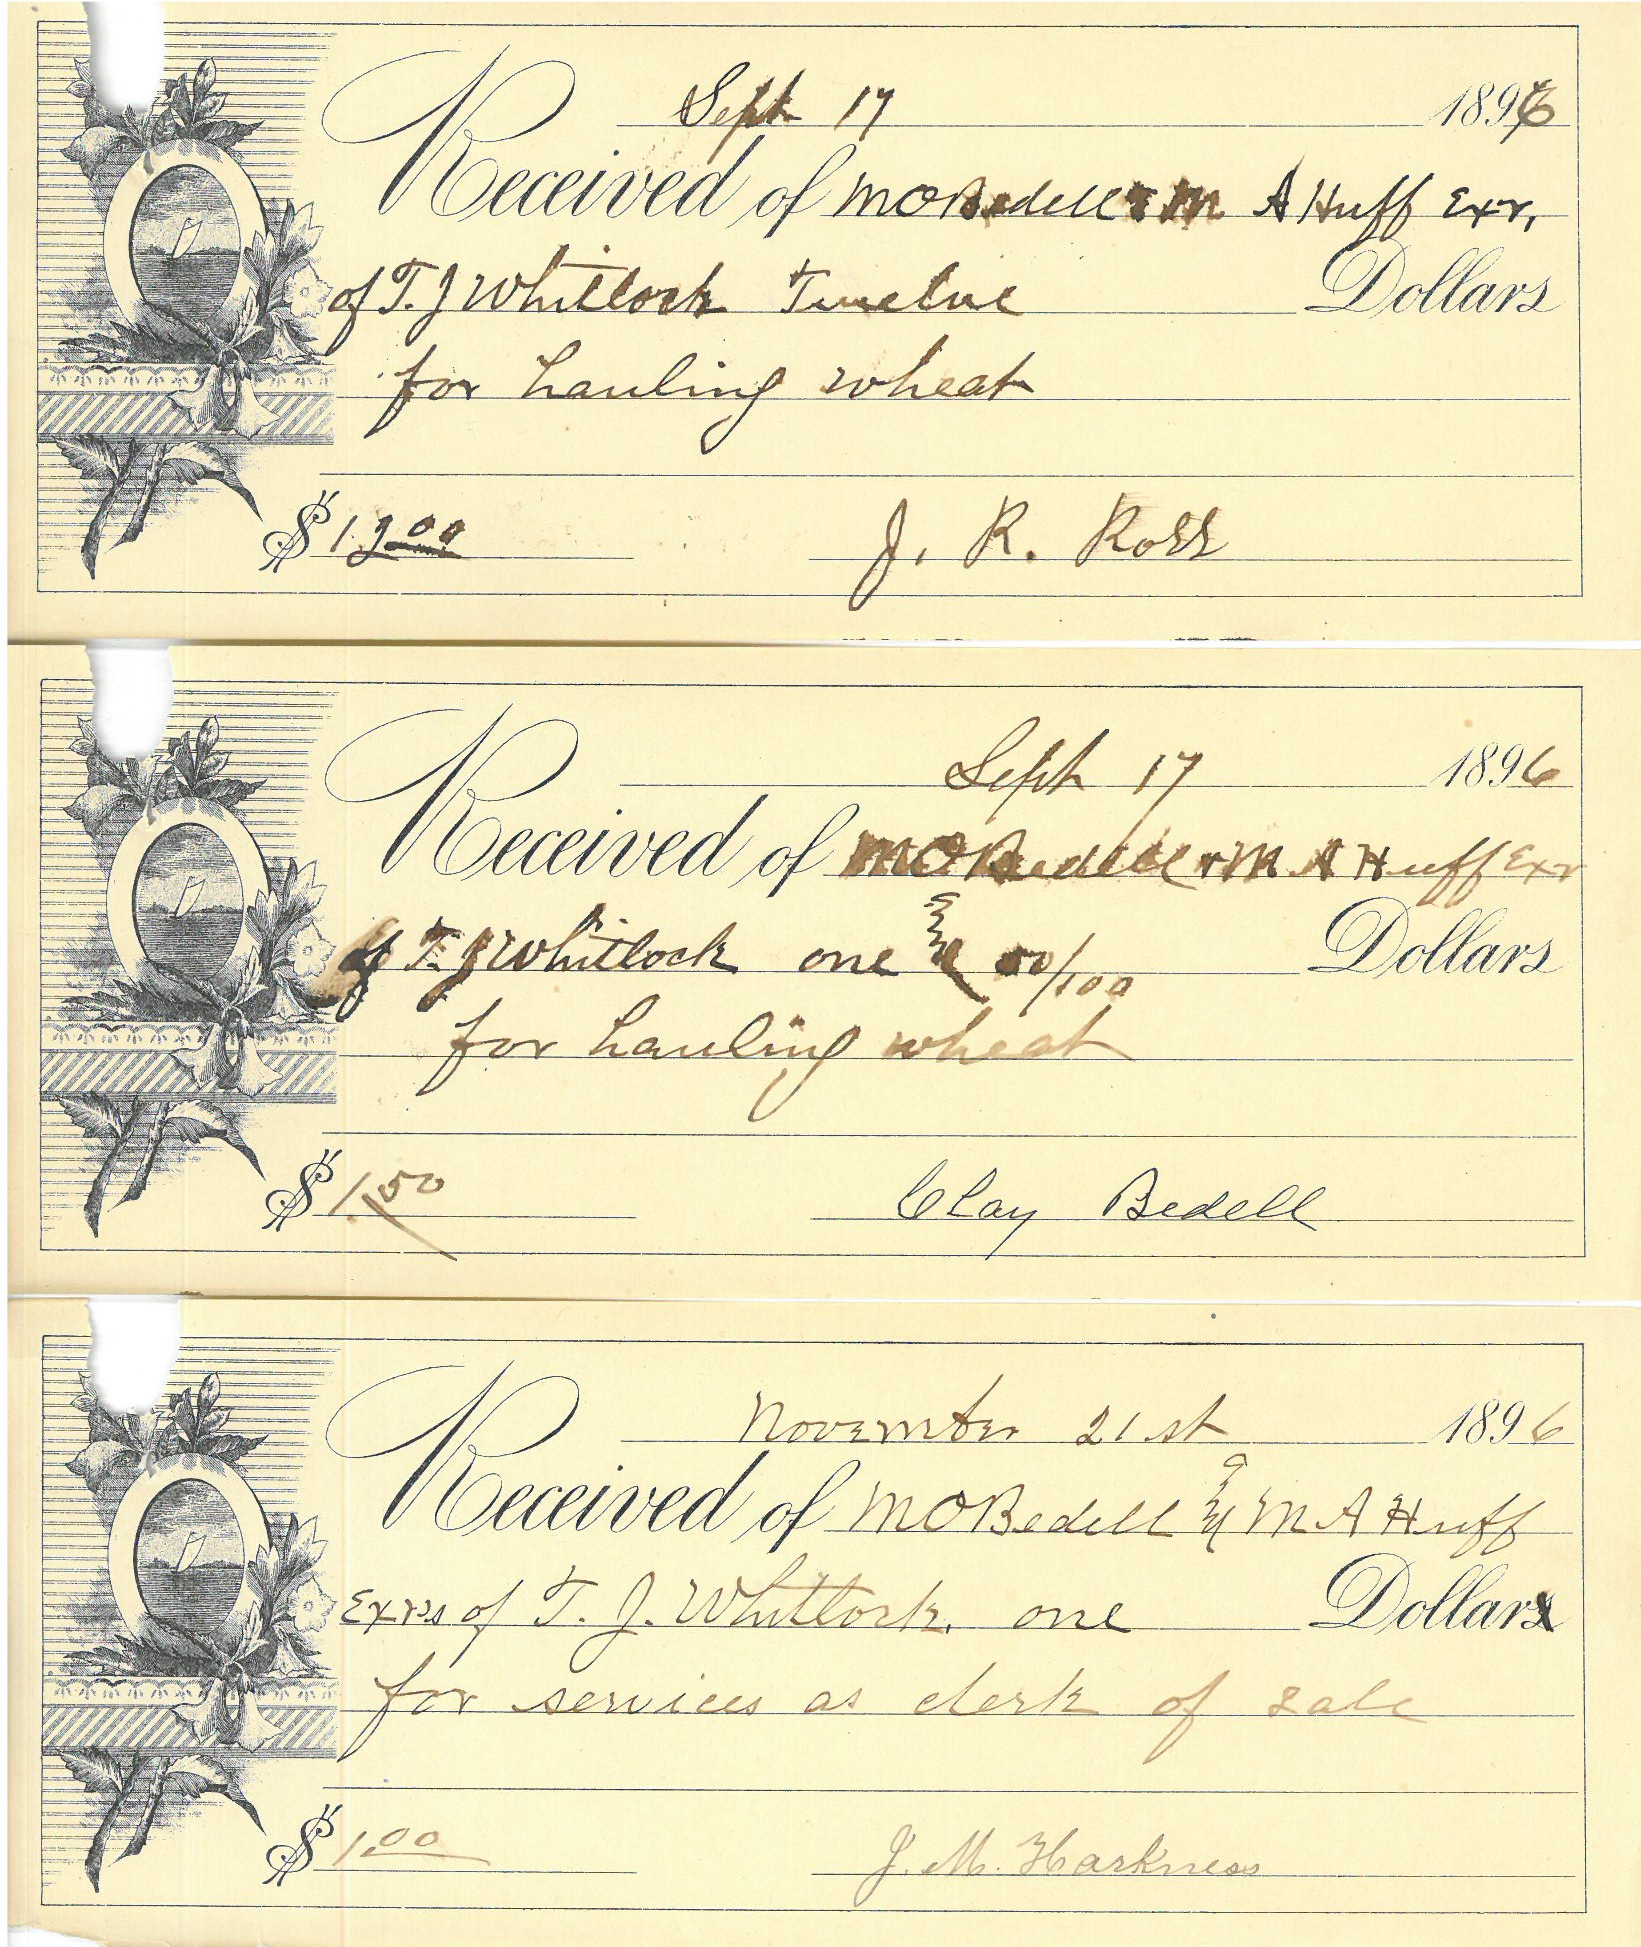 Sept 17 1896
Received of M O Bedell & M A Huff Exr,
of T. J Whitlock Twelve Dollars
for hauling wheat
$ 12.00 J. R. Ross
Sept 17 1896
Received of M O Bedell + M A Huff Exr
of T. J Whitlock one & 50/100 Dollars
for hauling wheat
$ 1.50 Clay Bedell
November 21st 1896
Received of M O Bedell & M A Huff
Exrs of T. J. Whitlock. one Dollar
for services as clerk of sale
$ 1.00 J. M. Harkness